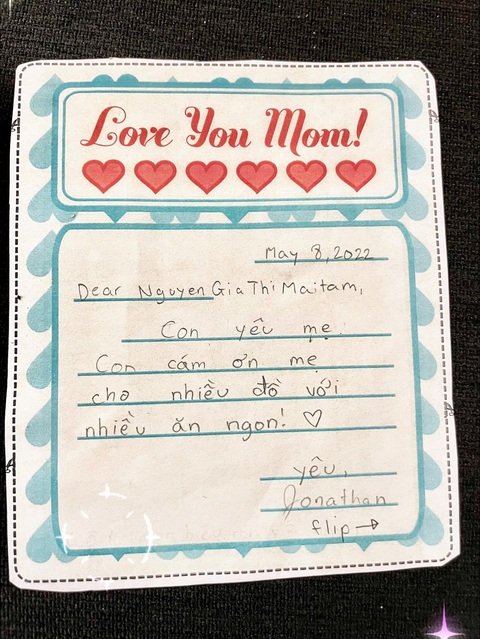 Love You Mom!
May 8, 2022
Dear Nguyen Gia Thi Maitam,
Con yêu mẹ.
Con cám ơn mẹ
cho nhiều đồ với
nhiều ăn ngon! ♡
yêu,
Jonathan
flip →